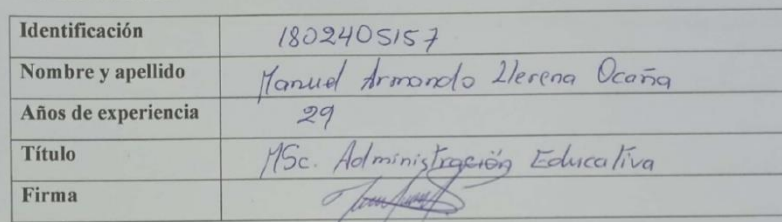 Identificación 1802405157
Nombre y apellido Manuel Armando Llerena Ocaña
Años de experiencia 29
Título MSc. Administración Educativa
Firma